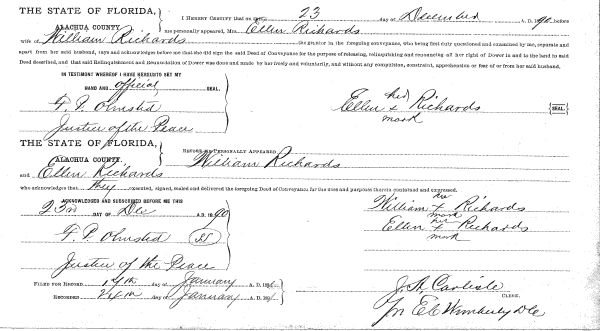 THE STATE OF FLORIDA,
ALACHUA COUNTY.
I HEREBY CERTIFY That on this 23 day of December A. D. 1890 before
me personally appeared, Mrs. Ellen Richards
wife of William Richards the grantor in the foregoing conveyance, who being first duly questioned and examined by me, separate and
apart from her said husband, says and acknowledges before me that she did sign the said Deed of Conveyance for the purpose of releasing, relinquishing all her right of Dower in and to the land in said
Deed described, and that said Relinquishment and Renunciation of Dower was done and made by her freely and voluntarily, and without any compulsion, constraint, apprehension or fear of or from her said husband,
IN TESTIMONY WHEREOF I HAVE HEREUNTO SET MY
HAND AND official SEAL.
F. P. Olmsted
Justice of the Peace
her
Ellen x Richards SEAL
mark
THE STATE OF FLORIDA,
ALACHUA COUNTY.
BEFORE ME PERSONALLY APPEARED
William Richards
and Ellen Richards
who acknowledges that they executed, signed, sealed and delivered the foregoing Deed of Conveyance for the uses and purposes therein contained and expressed.
ACKNOWLEDGED AND SUBSCRIBED BEFORE ME THIS
23rd DAY OF Dec A. D. 1890
F. P. Olmsted SS
Justice of the Peace
his
William x Richards
mark
her
Ellen x Richards
mark
FILED FOR RECORD 14th day of January A. D. 189
RECORDED 24th day of January A. D. 189
J. A. Carlisle
CLERK.
Pr E C Wimberly D C